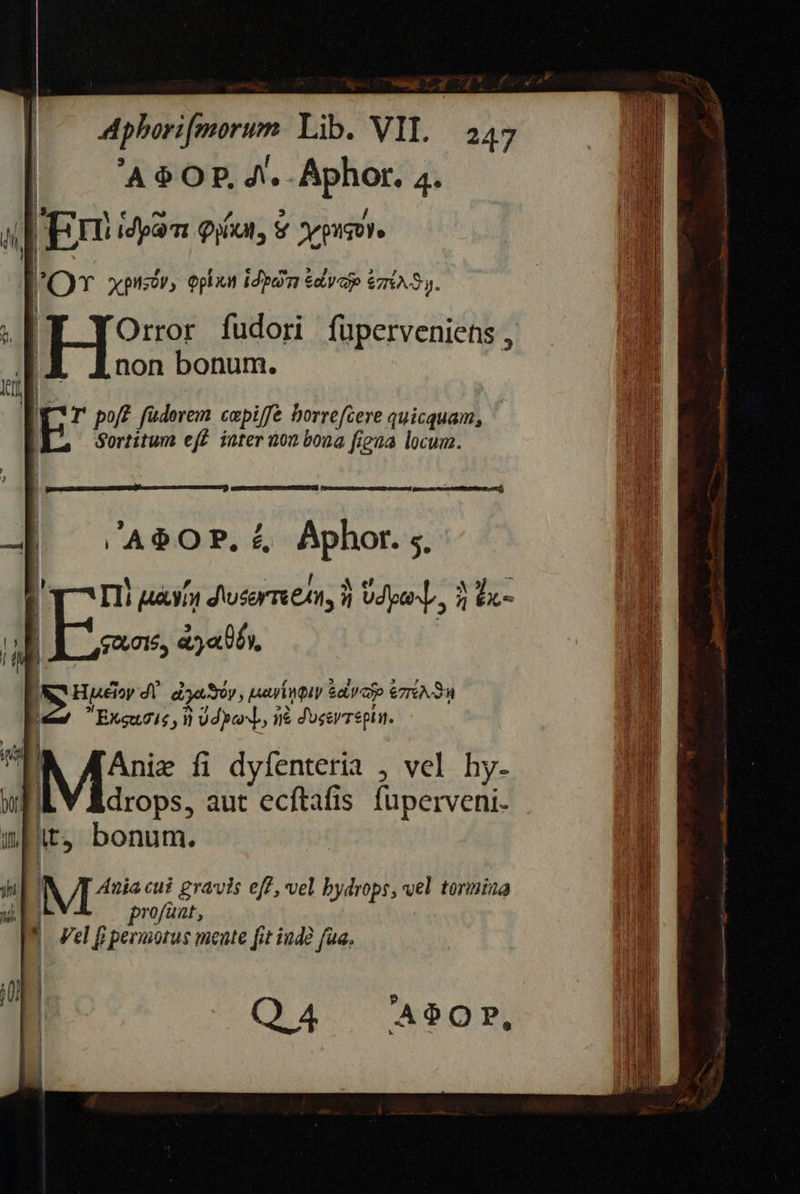 Aphoriſmorum Lib. VII. 247
ἈΦΟΡ. δʹ. Aphor. 4.
Ἐπὶ ἱδρῶτι φρίκη, ȣ χρηϛόν.
Οὐ χρηϛόν, φρίκη ἱδρῶτι ἐάνπερ ἐπέλθῃ.
HOrror ſudori ſuperveniens,
non bonum.
ET poſt ſudorem cœpiſſe horreſcere quicquam,
Sortitum eſt inter non bona ſigna locum.
ἈΦΟΡ. έ, Aphor. 5.
Ἐπὶ μανίῃ δυσεντερίη, ἢ ὕδρωψ, ἢ ἔκ-
ϛασις, ἀγαθόν,
Ημεῖον δ' ἀγαθόν, μανίηφιν ἐάνπερ ἐπέλθῃ
Ἔκϛασις, ἢ ὕδρωψ, ἠὲ δυσεντερίη.
MAniæ ſi dyſenteria, vel hy-
drops, aut ecſtaſis ſuperveni-
it, bonum.
MAnia cui gravis eſt, vel hydrops, vel tormina
proſunt,
Vel ſi permotus mente fit indè ſua.
Q4 ἈΦΟΡ,